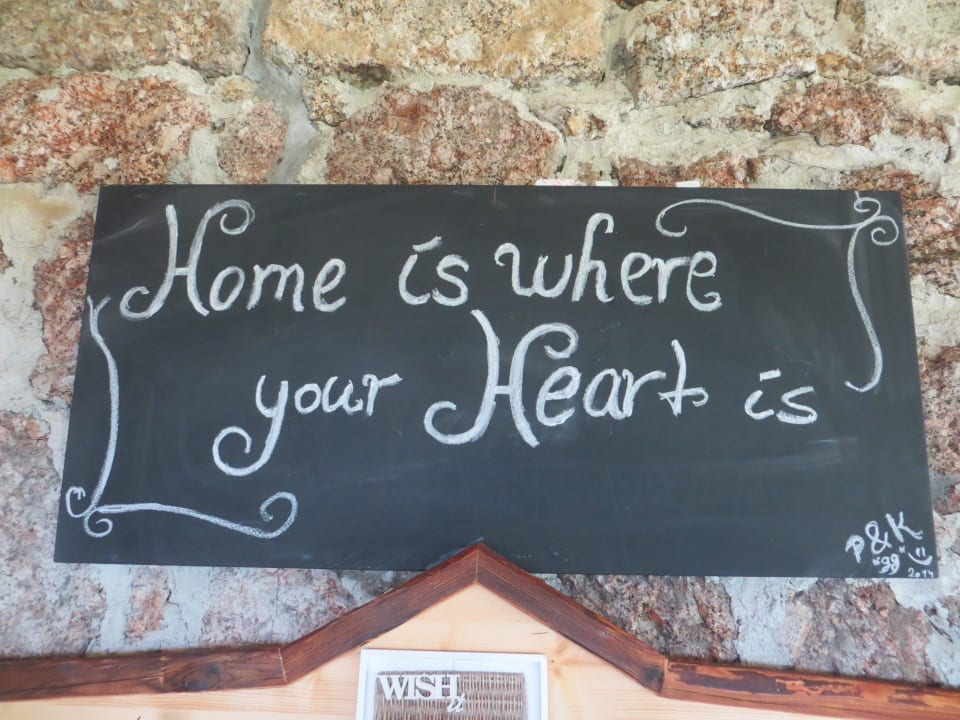 Home is where
your Heart is
P & K
"gg"
2014
WISH
it